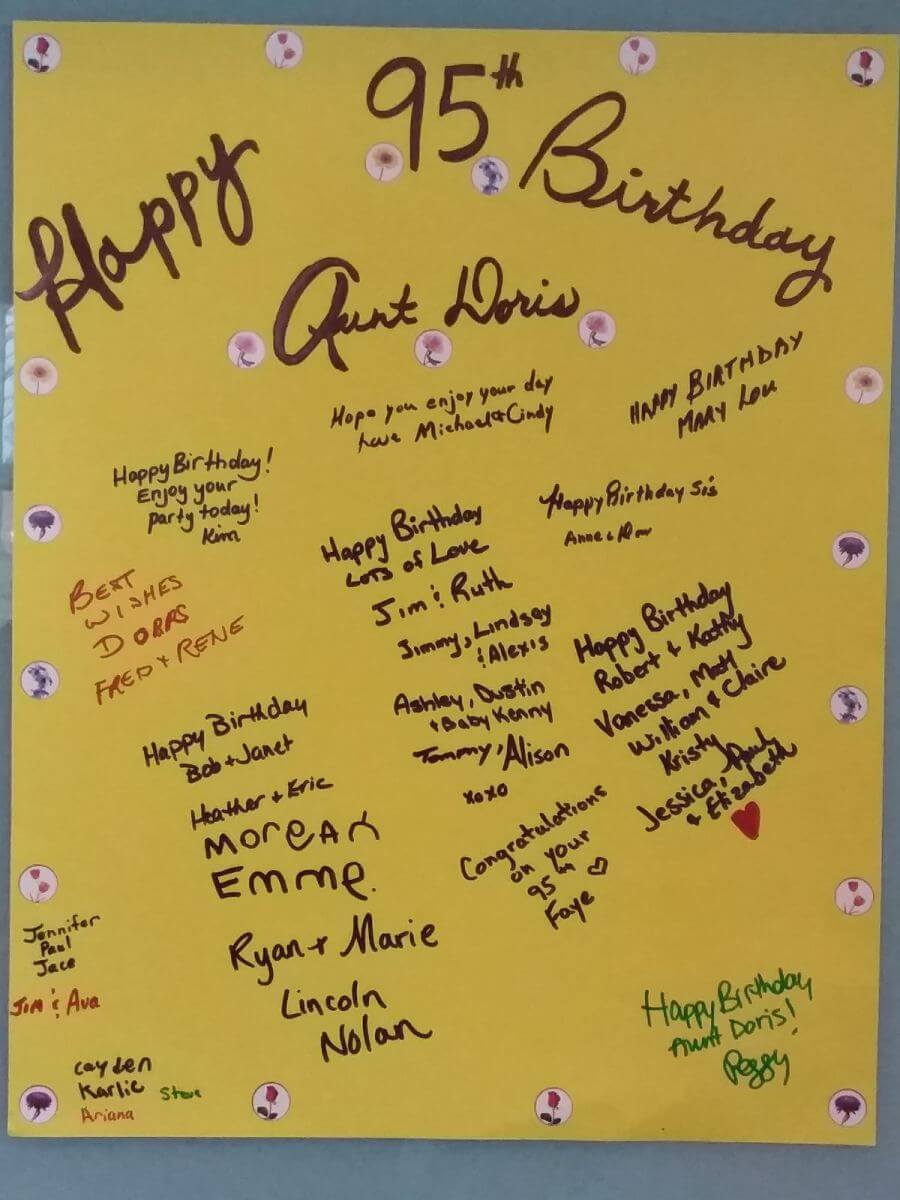 Happy 95th Birthday
Aunt Doris
Hope you enjoy your day
Love Michael & Cindy
HAPPY BIRTHDAY
MARY LOU
Happy Birthday!
Enjoy your
party today!
Kim
Happy Birthday Sis
Anne &
Happy Birthday
LOTS of Love
Jim & Ruth
Jimmy, Lindsey
& Alexis
Ashley, Dustin
+ Baby Kenny
Tommy, Alison
xoxo
BEST
WISHES
FRED + RENE
Happy Birthday
Robert + Kathy
Vanessa, Matt
William + Claire
Kristy
Jessica, Paul
+ Elizabeth
Happy Birthday
Bob + Janet
Heather + Eric
MORGAN
Emme.
Ryan + Marie
Lincoln
Nolan
Congratulations
on your
95th
Faye
Jennifer
Paul
Jace
Jim & Ava
Cayden
Karlie
Steve
Ariana
Happy Birthday
Aunt Doris!
Peggy